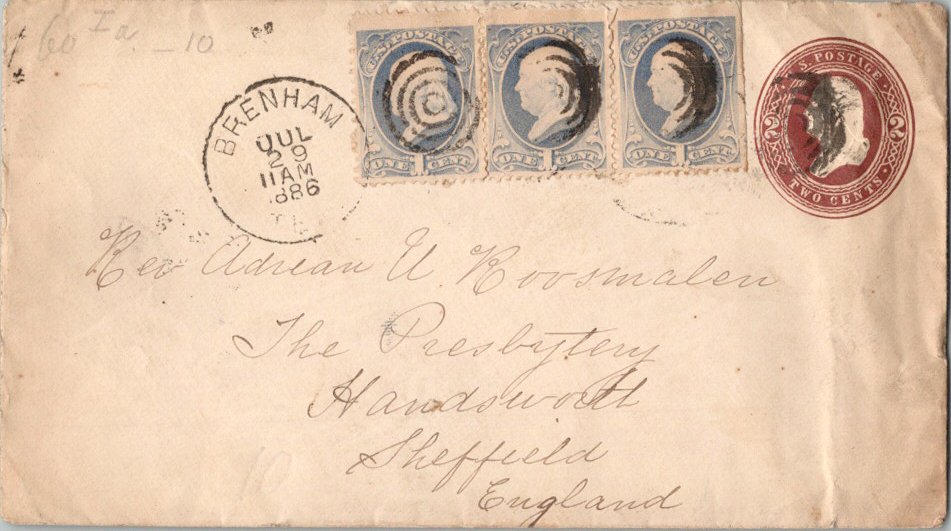 60 Ia - 10
U.S. POSTAGE
ONE 1 CENT
U.S. POSTAGE
ONE 1 CENT
U.S. POSTAGE
ONE 1 CENT
U.S. POSTAGE
2 2
TWO CENTS
BRENHAM
JUL
29
11AM
1886
Rev Adrean U Roosmalen
The Presbytery
Handsworth
Sheffield
England
10